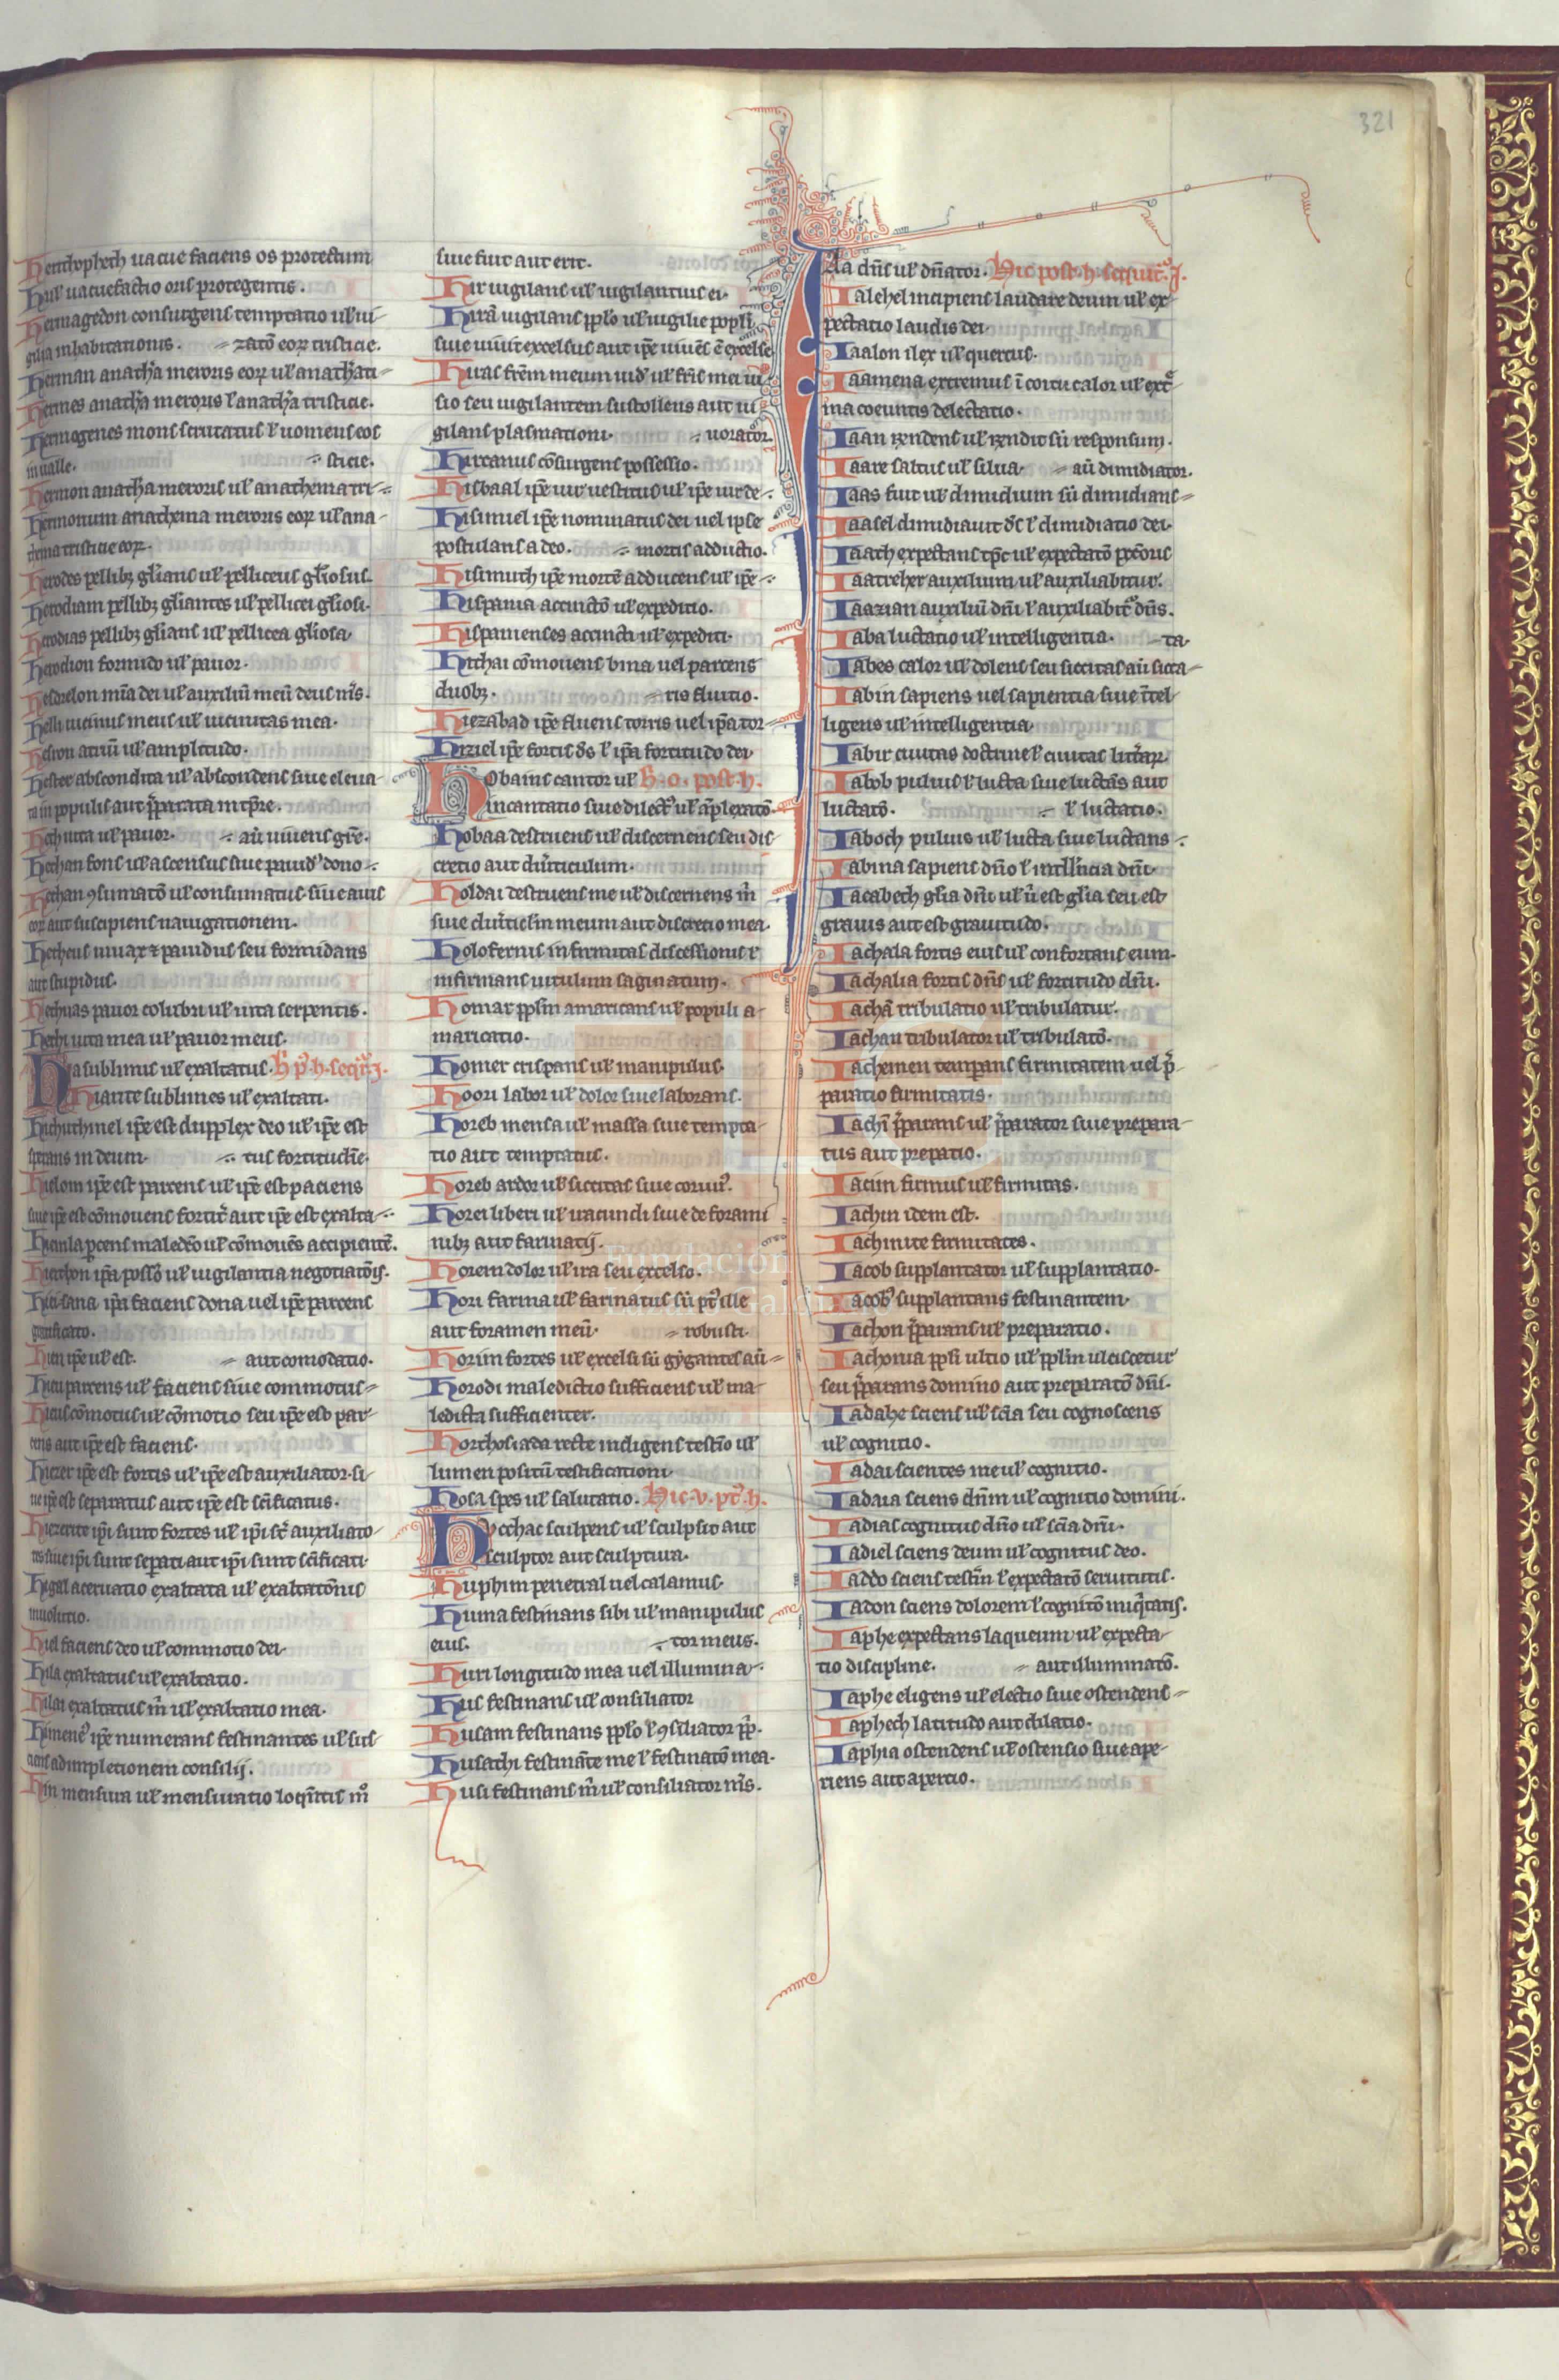 321
Hemthophech uacue faciens os protectum
Hul uacuefactio oris protegentis.
Hermagedon consurgens temptatio ul' ui-
gilia inhabitationis. zatō eoꝝ tristicie.
Herman anath̄a meroris eoꝝ ul' anath̄ati-
Hermes anath̄a meroris l' anath̄a tristicie.
Hermogenes mons scrutatus l' uomens eos
in ualle. sticie.
Hermon anath̄a meroris ul' anathema tri-
Hermonum anathema meroris eoꝝ ul' ana-
thema tristicie eoꝝ.
Herodes pellibꝫ gl'ians ul' pelliceus gl'iosus.
Herodiam pellibꝫ gl'iantes ul' pellicei gl'iosi.
Herodias pellibꝫ gl'ians ul' pellicea gl'iosa.
Herodion formido ul' pauor.
Hesdrelon mīa dei ul' auxiliū meū deus nr̄s.
Hesli uicinus meus ul' uicinitas mea.
Hesron atriū ul' amplitudo.
Hester abscondita ul' abscondens siue eleua-
ta in populis aut p̄parata in tp̄re.
Hethiuta ul' pauor. aū uiuens gr̄e.
Hethan fons ul' ascensus siue pauid' dono
Hethan ꝯsumatō ul' consumatus siue auis
eoꝝ aut suscipiens nauigationem.
Hetheus uiuax & pauidus seu formidans
aut stupidus.
Hethias pauor colubri ul' uita serpentis.
Hethi uita mea ul' pauor meus.
Hia sublimis ul' exaltatus. H p' h. seqit' J.
Hiante sublimes ul' exaltati.
Hichuthmel ip̄e est dupplex deo ul' ip̄e est
sperans in deum. tus fortitudīe.
Hielom ip̄e est parcens ul' ip̄e est paciens
siue ip̄e est cōmouens fortit' aut ip̄e est exalta-
Hiemla p̄cens maledc̄o ul' cōmouēs accipientē.
Hierchon ip̄a poss̄o ul' uigilantia negotiatōis.
Hiei sana ip̄a faciens dona uel ip̄e parcens
Hieu ip̄e ul' est. aut comodatio.
Hieu parcens ul' faciens siue commotus
Hieus cōmotus ul' cōmotio seu ip̄e est par-
cens aut ip̄e est faciens.
Hiezer ip̄e est fortis ul' ip̄e est auxiliator si-
ue ip̄e est separatus aut ip̄e est sc̄ificatus.
Hiezerite ip̄i sunt fortes ul' ip̄i sc̄ auxiliato-
res siue ip̄i sunt sep̄ati aut ip̄i sunt sc̄ificati.
Higal aceruatio exaltata ul' exaltatōnis
inuolutio.
Hiel faciens deo ul' commotio dei.
Hila exaltatus ul' exaltatio.
Hilai exaltatus m̄ ul' exaltatio mea.
Himene' ip̄e numerans festinantes ul' sus-
ciens adimpletionem consilij.
Hin mensura ul' mensuratio loq̄ntis m̊
siue fuit aut erit.
Hir uigilans ul' uigilantius ei.
Hirā uigilans pplo ul' uigilie popli
siue uiuit excelsus aut ip̄e uiuēs ē excelse
Hiras frēm meum uid' ul' frīs mei ui-
sio seu uigilantem sustollens aut ui-
gilans plasmationi. uorator.
Hircanus cōsurgens possessio.
Hisbaal ip̄e uir uestitus ul' ip̄e uir de-
Hisimiel ip̄e nominatus dei uel ipse
postulans a deo. mortis adductio.
Hisimuth ip̄e mortē adducens ul' ip̄e
Hispania accinctō ul' expeditio.
Hispanienses accincti ul' expediti.
Hithai cōmouens bina uel parcens
duobꝫ. ris fluitio.
Hiezabad ip̄e fluens torris uel ip̄a tor-
Hiziel ip̄e fortis d̄s l' ip̄a fortitudo dei.
Hobains cantor ul' H. o. post. h.
incantatio siue dilect' ul' āplexatō.
Hobaa destruens ul' discernens seu dis
cretio aut diūticulum.
Holdai destruens me ul' discernens m̄
siue diūticl'm meum aut discretio mea.
Holofernis infirmitas discessionis l'
infirmans uitulum saginatum.
Homar ppl'm amaricans ul' populi a-
maricatio.
Homer crispans ul' manipulus.
Hoori labor ul' dolor siue laborans.
Horeb mensa ul' massa siue tempta-
tio aut temptatus.
Horeb ardor ul' siccitas siue coruus.
Horei liberi ul' iracundi siue de forami
nibꝫ aut farinatij.
Horem dolor ul' ira seu excelso.
Hori farina ul' farinatus sū pt' ille
aut foramen meū. robusti.
Horim fortes ul' excelsi sū gygantes aū
Horodi maledictio sufficiens ul' ma-
ledicta sufficienter.
Horthosiada recte indigens testīo ul'
lumen positū testificationi.
Hosa spes ul' salutatio. Hic. v. pt' h.
Hucchac sculpens ul' sculpsit aut
sculptor aut sculptura.
Huphim penetral uel calamus.
Huma festinans sibi ul' manipulus
eius. tor meus.
Huri longitudo mea uel illumina-
Hus festinans ul' consiliator
Husam festinans pplo l' ꝯsiliator pp̄.
Husathi festināte me l' festinatō mea.
Husi festinans m̄ ul' consiliator nr̄s.
Iaa dn̄s ul' dn̄ator. Hic post. h. sequit' J.
Ialehel incipiens laudare deum ul' ex-
pectatio laudis dei.
Iaalon ilex ul' quercus.
Iaamena extremus ī coitu calor ul' ext'-
ma coeuntis delectatio.
Iaan rendens ul' rendit sū responsum.
Iaare saltus ul' silua. aū dimidiator.
Iaas fuit ul' dimidium sū dimidians
Iaasel dimidiauit d̄s l' dimidiatio dei.
Iaath expectans tp̄s ul' expectatō pectoris
Iaatreher auxilium ul' auxiliabitur.
Iaazian auxiliū dn̄i l' auxiliabit' dn̄s.
Iaba luctatio ul' intelligentia. ta.
Iabes calor ul' dolens seu siccitas aū sicca-
Iabin sapiens uel sapientia siue ītel-
ligens ul' intelligentia.
Iabir ciuitas doctrine l' ciuitas litt'aꝝ.
Iabob puluis l' lucta siue luctās aut
luctatō. l' luctatio.
Iaboch puluis ul' lucta siue luctans
Iabina sapiens dn̄o l' intll'icia dn̄i.
Iacabech gl'ia dn̄i ul' ū est gl'ia seu est
grauis aut est grauitudo.
Iachala fortis eius ul' confortans eum.
Iachalia fortis dn̄s ul' fortitudo dn̄i.
Iachā tribulatio ul' tribulatur.
Iachan tribulator ul' tribulatō.
Iachemen temp̄ans firmitatem uel p̄-
paratio firmitatis.
Iachī p̄parans ul' p̄parator siue prepara-
tus aut prepatio.
Iacim firmus ul' firmitas.
Iachin idem est.
Iachinite firmitates.
Iacob supplantator ul' supplantatio.
Iacob' supplantans festinantem.
Iachon p̄parans ul' preparatio.
Iachonia ppl'i ultio ul' ppl'm ulciscetur
seu p̄parans domino aut preparatō dn̄i.
Iadahe sciens ul' sc̄ia seu cognoscens
ul' cognitio.
Iadai scientes me ul' cognitio.
Iadaia sciens dn̄m ul' cognitio domini.
Iadias cognitus dn̄o ul' sc̄ia dn̄i.
Iadiel sciens deum ul' cognitus deo.
Iaddo sciens testīn l' expectatō seruitutis.
Iadon sciens dolorem l' cognitō iniq̄tatis.
Iaphe expectans laqueum ul' expecta-
tio discipline. aut illuminatō.
Iaphe eligens ul' electio siue ostendens
Iaphech latitudo aut dilatio.
Iaphia ostendens ul' ostensio siue ape-
riens aut apertio.
Fundación